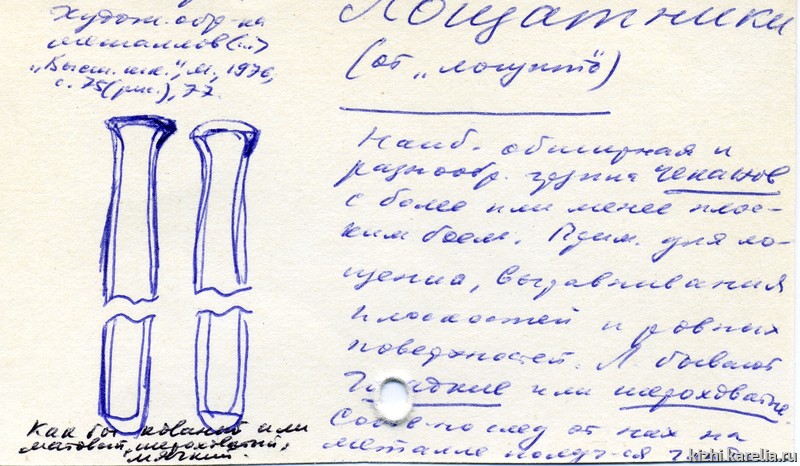 Худож. обр-ка
металлов (...)
„Высш. шк.", М., 1976,
с. 75 (рис.), 77.
Лощатники
(от „лощить")
Наиб. обширная и
разнообр. группа чеканов
с более или менее плос-
ким боем. Прим. для ло-
щения, выравнивания
плоскостей и ровных
поверхностей. Л. бывают
гладкие или шероховатые.
след от них на
металле получ-ся
Как бы кованый или
матовый, шероховатый,
мягкий.
kizhi.karelia.ru